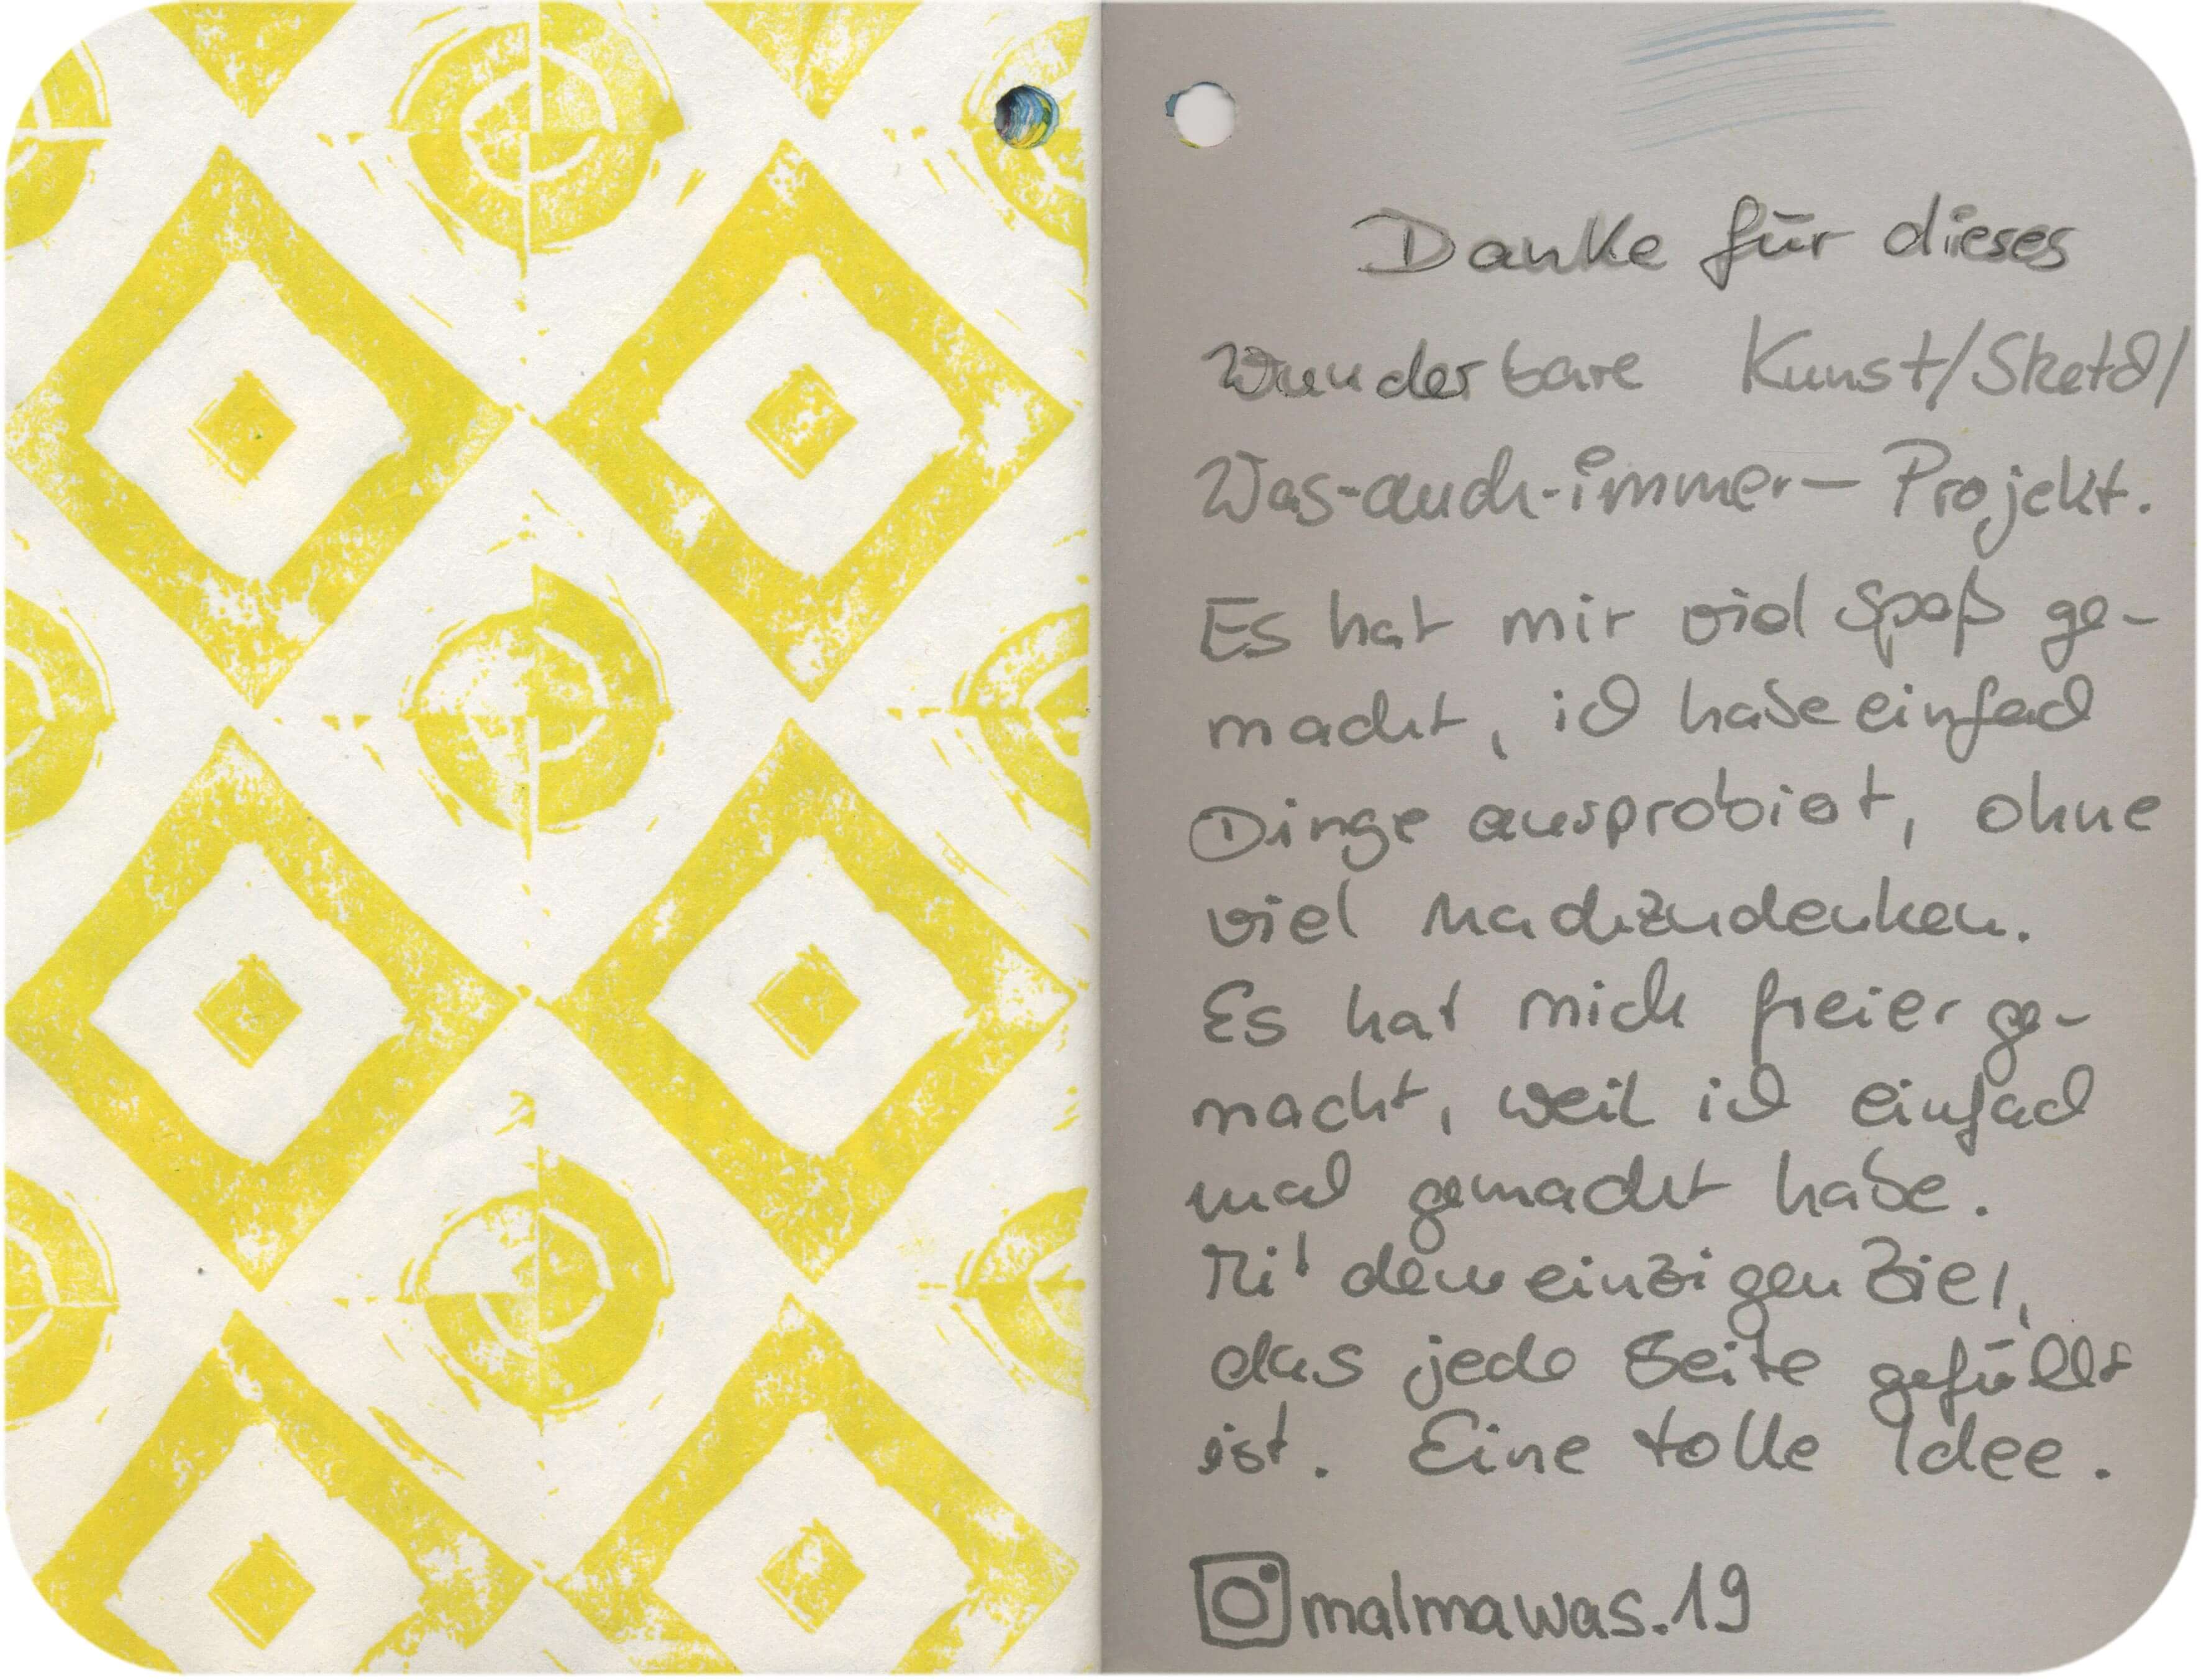 Danke für dieses
Wunderbare Kunst/Sketch/
Was-auch-immer-Projekt.
Es hat mir viel Spaß ge-
macht, ich habe einfach
Dinge ausprobiert, ohne
viel nachzudenken.
Es hat mich freier ge-
macht, weil ich einfach
mal gemacht habe.
Mit dem einzigen Ziel,
das jede Seite gefüllt
ist. Eine tolle Idee.
malmawas.19